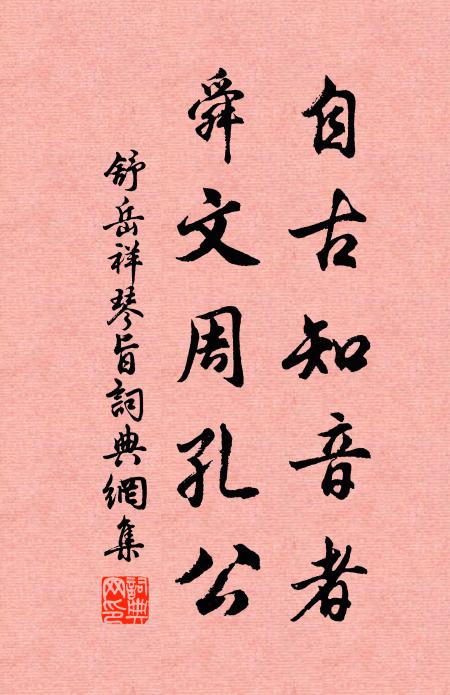 自古知音者
舜文周孔公
舒岳祥琴旨詞典網集
詞典網印